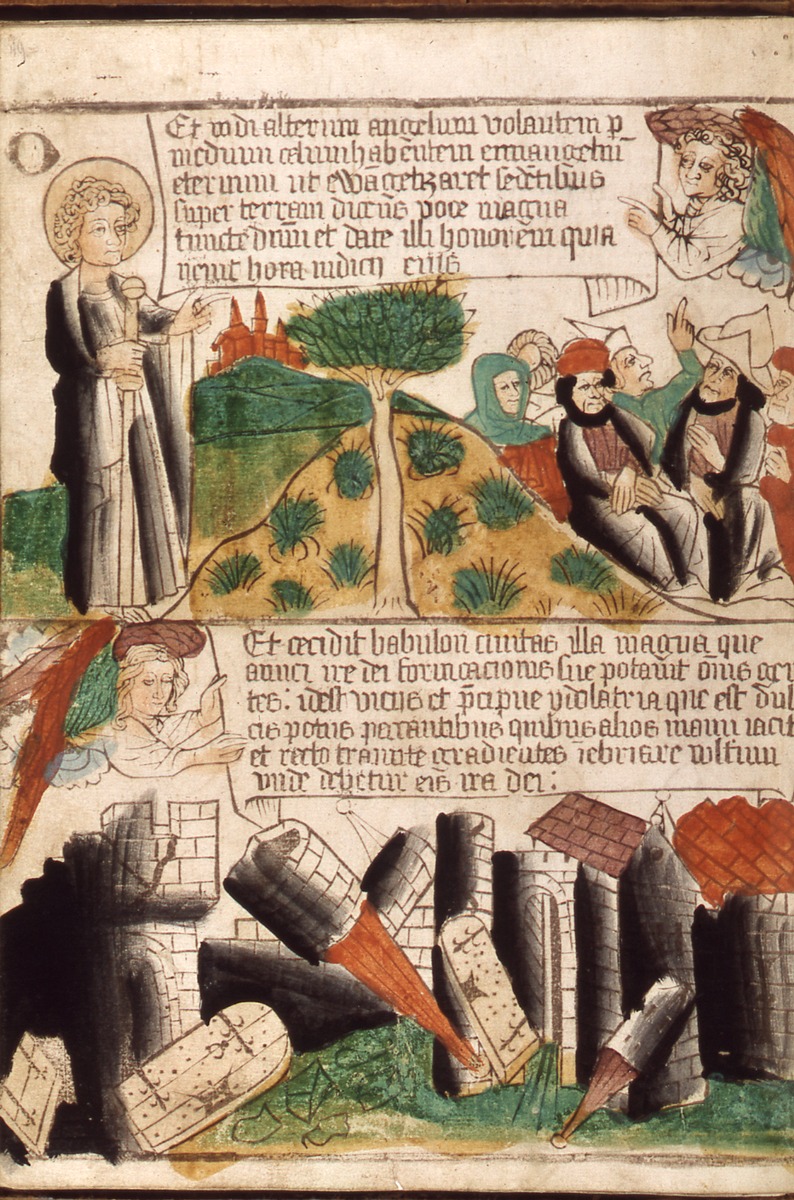 Et vidi alterum angelum volantem p
medium celum habentem ewangeliu
eternum ut ewangelizaret sedētibus
super terram dicens voce magna
timete dn̄m et date illi honorem quia
venit hora iudicij eius
Et cecidit babulon civitas illa magna que
a vino ire dei fornicacionis sue potavit om̄s gen
tes: idest vicijs et p̄cipue ydolatria que est dul
cis potus peccantibus quibus alios
et recto tramite gradientes īebriare
vnde debetur eis ira dei: